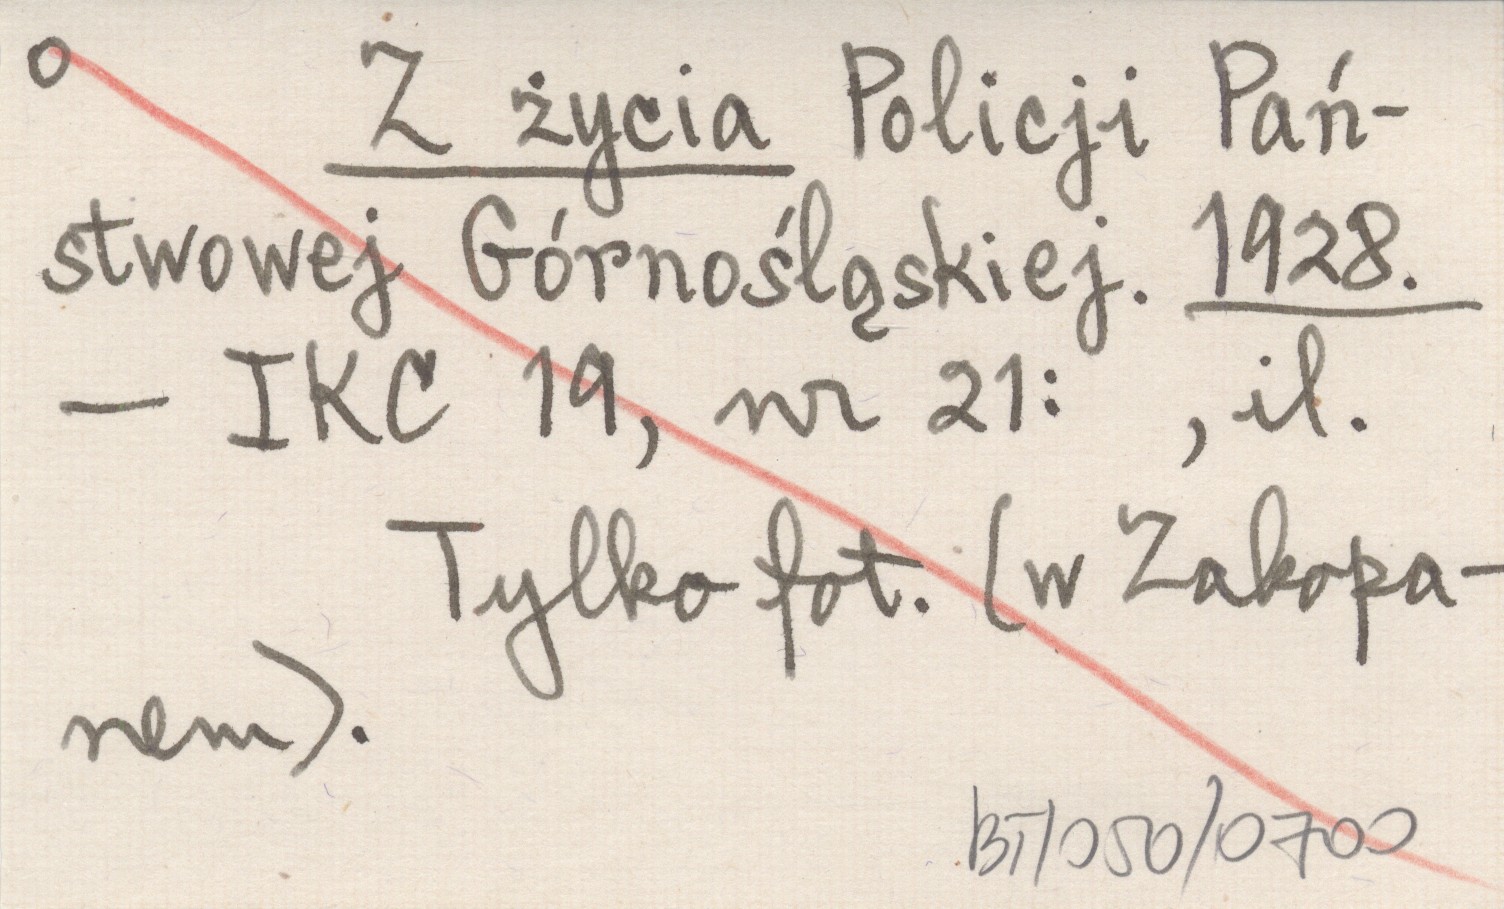 o Z życia Policji Pań-
stwowej Górnośląskiej. 1928.
— IKC 19, nr 21: , il.
Tylko fot. (w Zakopa-
nem).
BT/050/0700